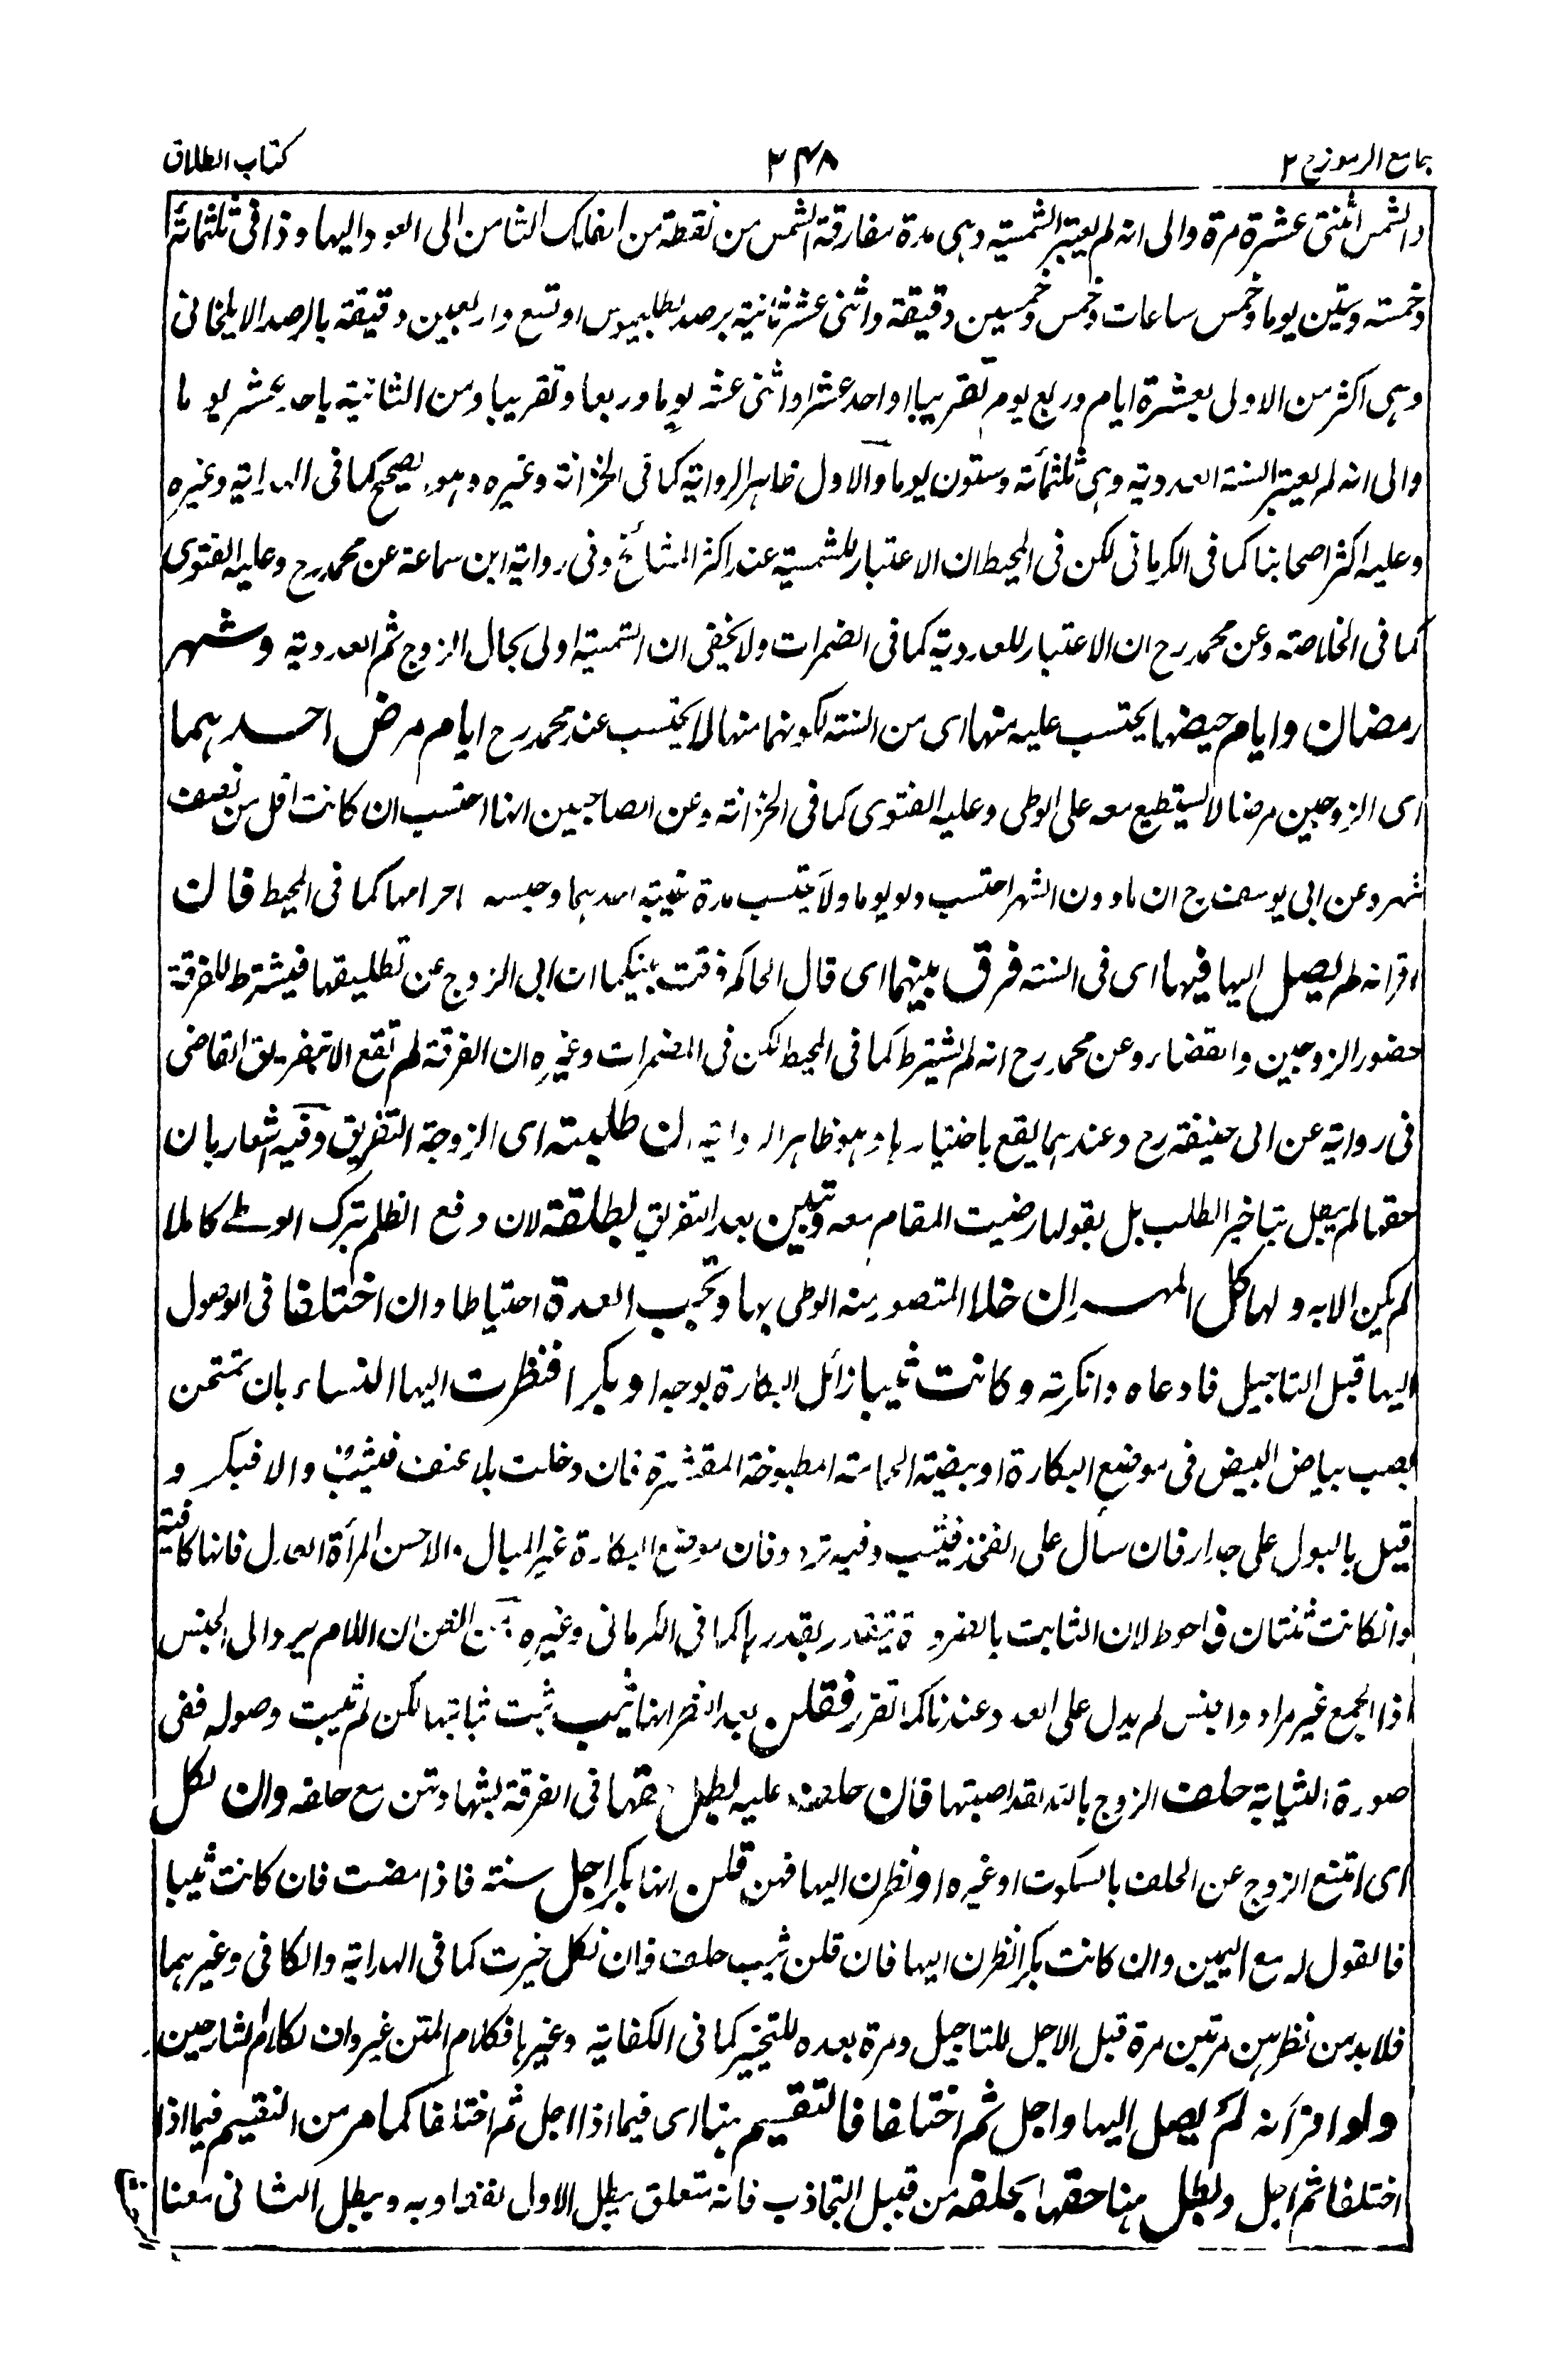 جامع الرموز ج ٢
٢٤٨
كتاب الطلاق
والشمس اثنتى عشرة مرة والى انه لم يعتبر الشمسية وهى مدة مفارقة الشمس من نقطة من الفلك الثامن الى العود اليها وذا فى ثلثمائة
وخمسة وستين يوما وخمس ساعات وخمس وخمسين دقيقة واثنى عشر ثانية برصد بطليموس او تسع واربعين دقيقة بالرصد الايلخانى
وهى اكثر من الاولى بعشرة ايام وربع يوم تقريبا او احد عشر او اثنى عشر يوما وربعا وتقريبا ومن الثانية باحد عشر يوما
والى انه لم يعتبر السنة العددية وهى ثلثمائة وستون يوما والاول ظاهر الرواية كما فى الخزانة وغيره وهو الصحيح كما فى الهداية وغيره
وعليه اكثر اصحابنا كما فى الكرمانى لكن فى المحيط ان الاعتبار للشمسية عند اكثر المشائخ وفى رواية ابن سماعة عن محمد رح وعليه الفتوى
كما فى الخلاصة وعن محمد رح ان الاعتبار للعددية كما فى المضمرات ولا يخفى ان الشمسية اولى بحال الزوج ثم العددية وشهر
رمضان وايام حيضها يحتسب عليه منها اى من السنة لكونهما منها لا يحتسب عند محمد رح ايام مرض احدهما
اى الزوجين مرضا لا يستطيع معه على الوطى وعليه الفتوى كما فى الخزانة وعن الصاحبين انها احتسب ان كانت اقل من نصف
شهر وعن ابى يوسف رح ان ما دون الشهر احتسب ولو يوما ولا يحتسب مدة غيبة احدهما وحبسه احرامها كما فى المحيط فان
اقر انه لم يصل اليها فيها اى فى السنة فرق بينهما اى قال الحاكم فرقت بينكما ان ابى الزوج عن تطليقها فيشترط للفرقة
حضور الزوجين والقضاء وعن محمد رح انه لم يشترط كما فى المحيط لكن فى المضمرات وغيره ان الفرقة لم تقع الا بتفريق القاضى
فى رواية عن ابى حنيفة رح وعندهما يقع باختيارها وهو ظاهر الرواية ان طلبته اى الزوجة التفريق وفيه اشعار بان
حقها لم يبطل بتاخير الطلب بل بقولها رضيت المقام معه وتبين بعد التفريق بطلقة لان دفع الظلم بترك الوطى كاملا
لم يكن الا به ولها كل المهر ان خلا المتصور منه الوطى بها وتجب العدة احتياطا وان اختلفا فى الوصول
اليها قبل التاجيل فادعاه وانكرته وكانت ثيبا زائل البكارة بوجه او بكرا فنظرت اليها النساء بان تمتحن
بصب بياض البيض فى موضع البكارة او ببيضة الحمامة المطبوخة المقشرة فان دخلت بلا عنف فثيب والا فبكر و
قيل بالبول على جدار فان سأل على الفخذ فثيب وفيه تردد فان موضع البكارة غير المبال والاحسن المرأة العدل فانها كافية
وانكانت ثنتان فاحوط لان الثابت بالضرورة يتقدر بقدرها كما فى الكرمانى وغيره ان اللام يرد الى الجنس
اذا الجمع غير مراد والجنس لم يدل على العدد عند ناكما تقرر فقلن بعد النظر انها ثيب ثبت ثيابتها لكن لم يثبت وصوله ففى
صورة الثيابة حلف الزوج بالله لقد اصبتها فان حلف عليه بطل حقها فى الفرقة بشهادتهن مع حلفه وان نكل
اى امتنع الزوج عن الحلف بالسكوت او غيره او نظرن اليها فهن قلن انها بكر اجل سنة فاذا مضت فان كانت ثيبا
فالقول له مع اليمين وان كانت بكرا نظرن اليها فان قلن ثيب حلف وان نكل خيرت كما فى الهداية والكافى وغيرهما
فلا بد من نظرهن مرتين مرة قبل الاجل للتاجيل ومرة بعده للتخيير كما فى الكفاية وغيرها فكلام المتن غير واف لكلام الشارحين
ولو اقر أنه لم يصل اليها واجل ثم اختلفا فالتقسيم هنا اى فيما اذا اجل ثم اختلفا كما مر من التقسيم فيما اذا
اختلفا ثم اجل وبطل هنا حقها بحلفه من قبيل التجاذب فانه متعلق ببطل الاول لفظا وبه وببطل الثانى معنا